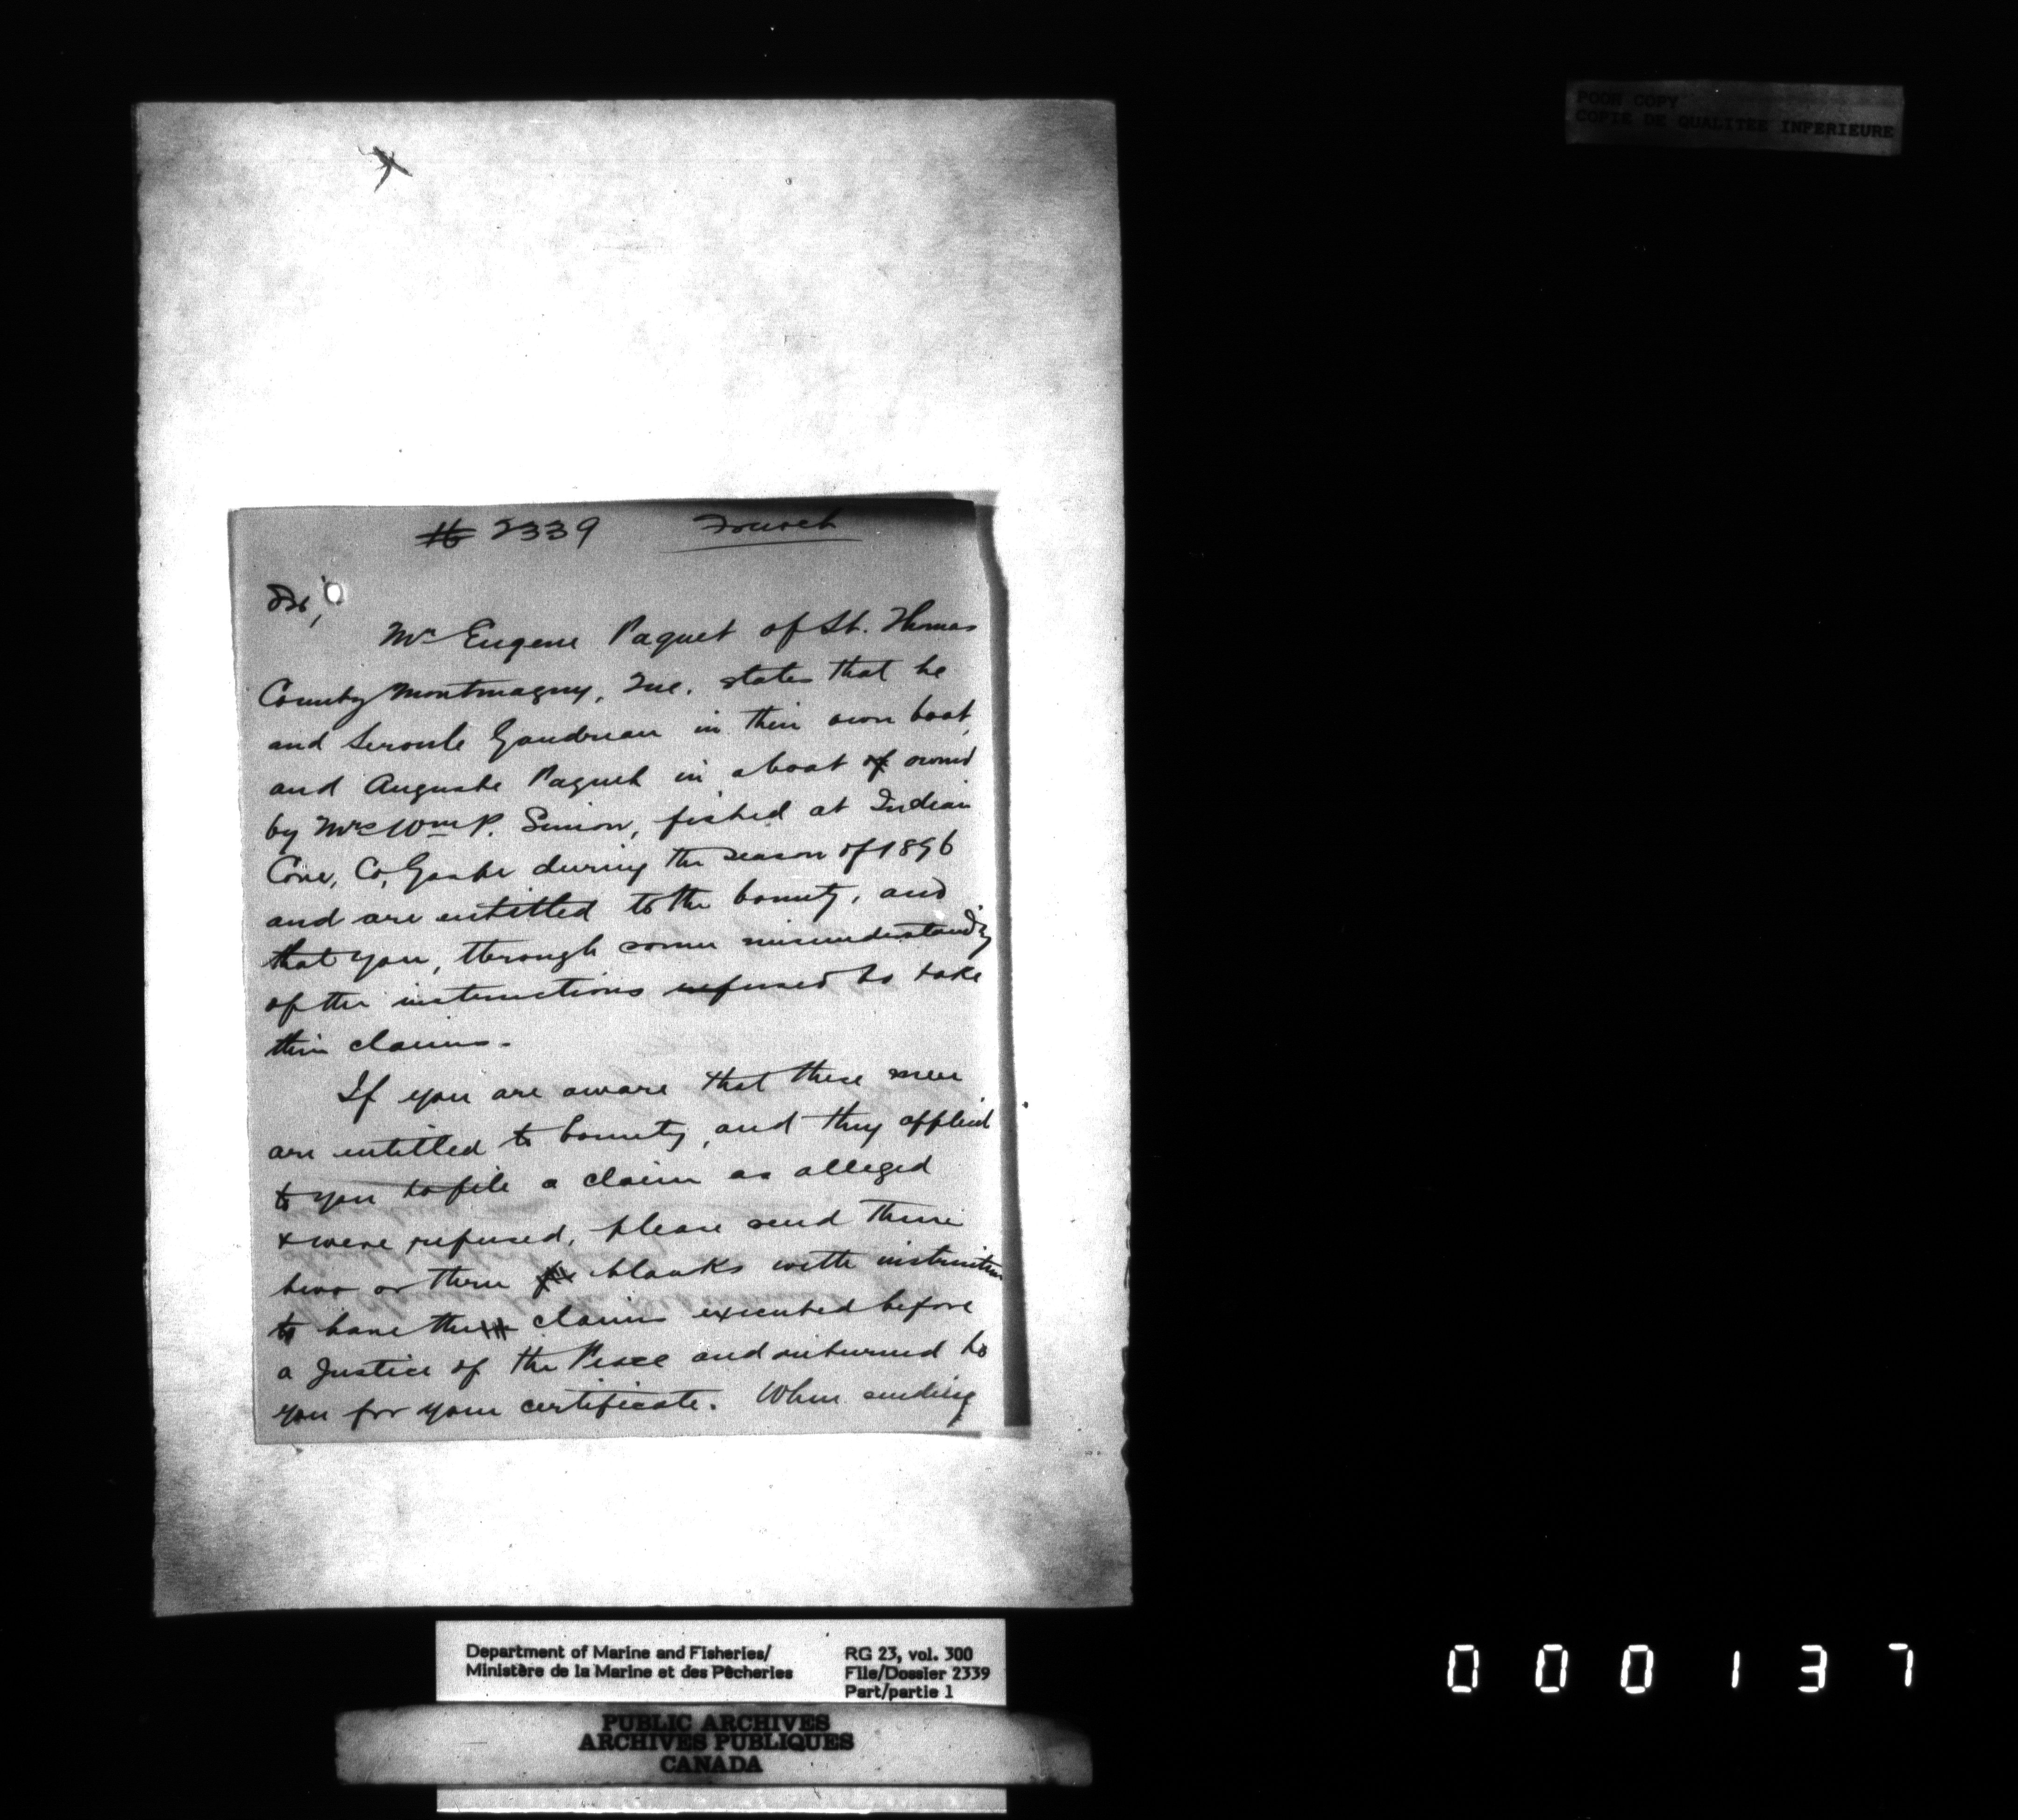 POOR COPY
COPIE DE QUALITEE INFERIEURE
# 2339 French
Sir,
Mr Eugene Paquet of St. Thomas
County Montmagny, Que. states that he
and Gaudreau in their own boat,
and Auguste Paquet in a boat of owned
by Mrs Wm P. Simon, fished at Indian
Cove, Co, Gaspe during the season of 1896
and are entitled to the bounty, and
that you, through some misunderstanding
of the instructions refused to take
their claims.
If you are aware that these men
are entitled to bounty, and they applied
to you to file a claim as alleged
& were refused, please send them
two or three blanks with instructions
to have the claims executed before
a Justice of the Peace and returned to
you for your certificate. When sending
Department of Marine and Fisheries/
Ministère de la Marine et des Pêcheries
RG 23, vol. 300
File/Dossier 2339
Part/partie 1
PUBLIC ARCHIVES
ARCHIVES PUBLIQUES
CANADA
000137